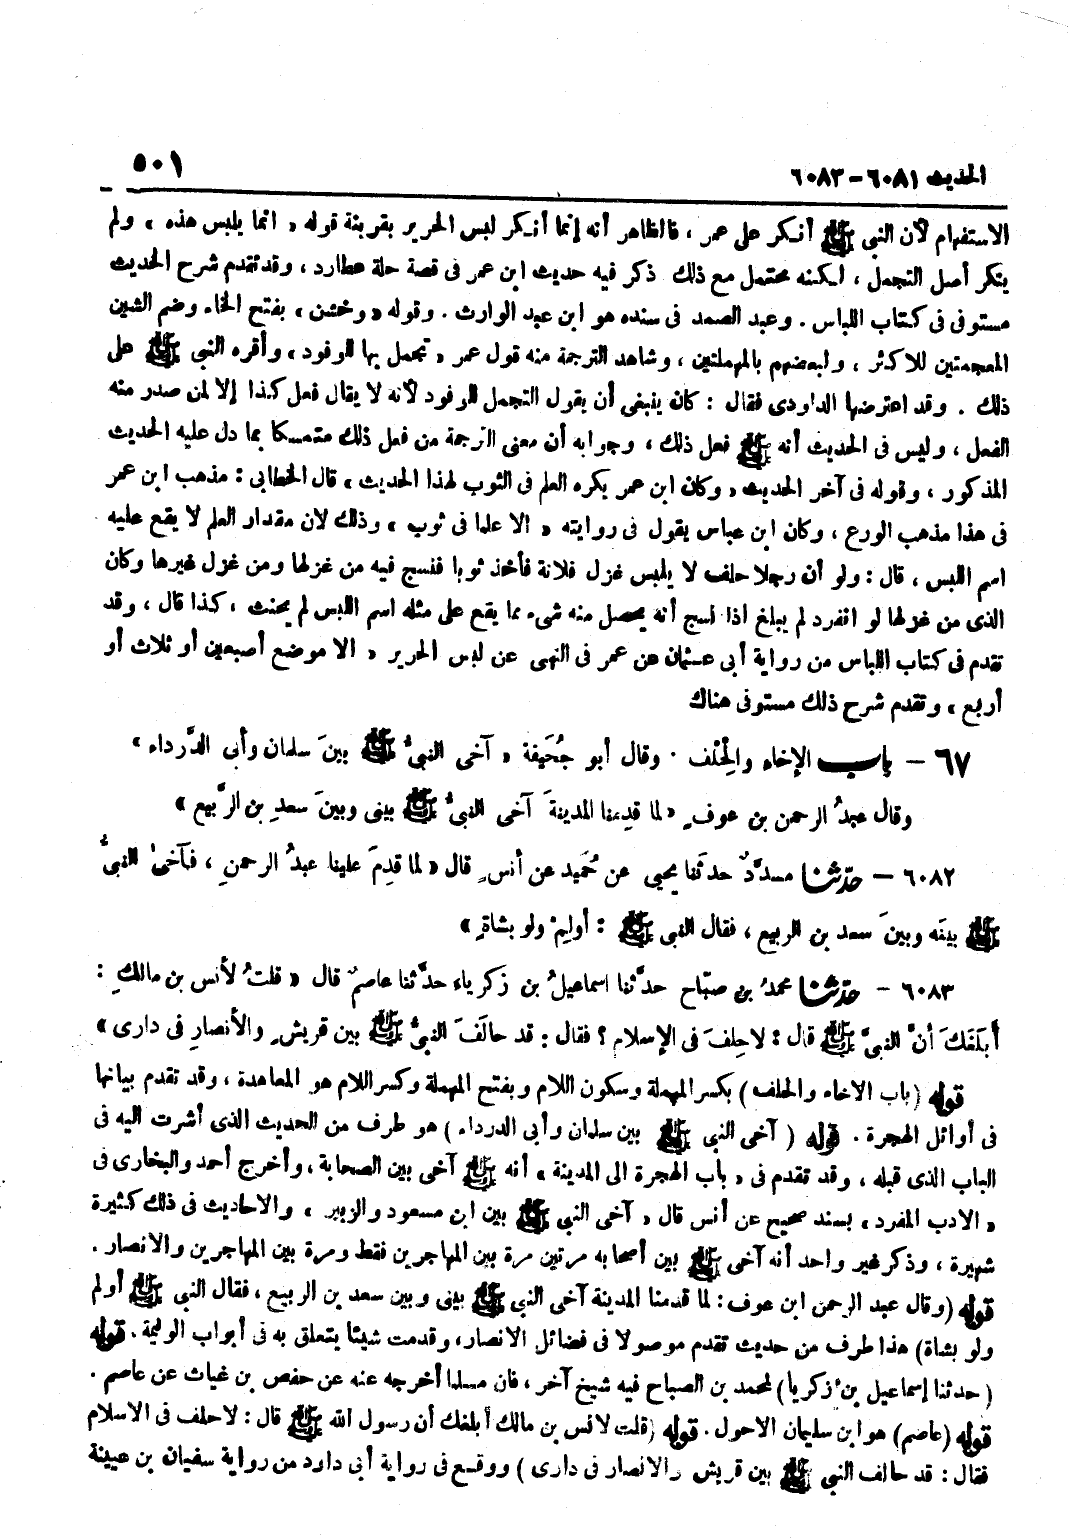 الحديث ٦٠٨١ - ٦٠٨٣
٥٠١
الاستفهام لأن النبي ﷺ أنكر على عمر ، فالظاهر أنه إنما أنكر لبس الحرير بقرينة قوله « انما يلبس هذه » ولم
ينكر أصل التجمل ، لكنه محتمل مع ذلك ذكر فيه حديث ابن عمر في قصة حلة عطارد ، وقد تقدم شرح الحديث
مستوفى في كتاب اللباس . وعبد الصمد في سنده هو ابن عبد الوارث . وقوله « وخشن » بفتح الخاء وضم الشين
المعجمتين للاكثر ، ولبعضهم بالمهملتين ، وشاهد الترجمة منه قول عمر « تجمل بها للوفود » وأقره النبي ﷺ على
ذلك . وقد اعترضها الداودى فقال : كان ينبغى أن يقول التجمل للوفود لأنه لا يقال فعل كذا إلا لمن صدر منه
الفعل ، وليس في الحديث أنه ﷺ فعل ذلك ، وجوابه أن معنى الترجمة من فعل ذلك متمسكا بما دل عليه الحديث
المذكور ، وقوله في آخر الحديث « وكان ابن عمر يكره العلم في الثوب لهذا الحديث » قال الخطابي : مذهب ابن عمر
في هذا مذهب الورع ، وكان ابن عباس يقول في روايته « الا علما في ثوب » وذلك لان مقدار العلم لا يقع عليه
اسم اللبس ، قال : ولو أن رجلا حلف لا يلبس غزل فلانة فأخذ ثوبا فنسج فيه من غزلها ومن غزل غيرها وكان
الذى من غزلها لو انفرد لم يبلغ اذا نسج أنه يحصل منه شىء مما يقع على مثله اسم اللبس لم يحنث ، كذا قال ، وقد
تقدم في كتاب اللباس من رواية أبي عثمان عن عمر في النهى عن لبس الحرير « الا موضع أصبعين أو ثلاث أو
أربع » وتقدم شرح ذلك مستوفى هناك
٦٧ - باب الإخاء والحِلْف . وقال أبو جُحَيفة « آخى النبيُّ ﷺ بينَ سلمان وأبى الدَّرداء »
وقال عبدُ الرحمن بن عوفٍ « لما قدِمنا المدينةَ آخى النبيُّ ﷺ بينى وبينَ سعدِ بن الرَّبيع »
٦٠٨٢ - حدّثنا مسدَّدٌ حدثَنا يحيى عن حُمَيد عن أنسٍ قال « لما قدِمَ علينا عبدُ الرحمنِ ، فآخىٰ النبىُّ
ﷺ بينَه وبينَ سعد بن الربيع ، فقال النبى ﷺ : أولِمْ ولو بشاةٍ »
٦٠٨٣ - حدّثنا محمدُ بن صبّاح حدَّثنا اسماعيلُ بن زكرياء حدَّثنا عاصمٌ قال « قلتُ لأنس بن مالكِ :
أَبلَغَكَ أنَّ النبىَّ ﷺ قال : لا حِلفَ فى الإسلام ؟ فقال : قد حالَفَ النبىُّ ﷺ بين قريشٍ والأنصارِ فى دارى »
قوله ( باب الاخاء والحلف ) بكسر المهملة وسكون اللام وبفتح المهملة وكسر اللام هو المعاهدة ، وقد تقدم بيانها
فى أوائل الهجرة . قوله ( آخى النبى ﷺ بين سلمان وأبى الدرداء ) هو طرف من الحديث الذى أشرت اليه فى
الباب الذى قبله ، وقد تقدم فى « باب الهجرة الى المدينة » أنه ﷺ آخى بين الصحابة ، وأخرج أحمد والبخارى فى
« الادب المفرد » بسند صحيح عن أنس قال « آخى النبى ﷺ بين ابن مسعود والزبير » والاحاديث فى ذلك كثيرة
شهيرة ، وذكر غير واحد أنه آخى ﷺ بين أصحابه مرتين مرة بين المهاجرين فقط ومرة بين المهاجرين والانصار .
قوله (وقال عبد الرحمن ابن عوف : لما قدمنا المدينة آخى النبى ﷺ بينى وبين سعد بن الربيع ، فقال النبى ﷺ أولم
ولو بشاة) هذا طرف من حديث تقدم موصولا فى فضائل الانصار ، وقدمت شيئا يتعلق به فى أبواب الوليمة . قوله
( حدثنا إسماعيل بن زكريا ) لمحمد بن الصباح فيه شيخ آخر ، فان مسلما أخرجه عنه عن حفص بن غياث عن عاصم .
قوله (عاصم) هو ابن سليمان الاحول . قوله (قلت لانس بن مالك أبلغك أن رسول الله ﷺ قال : لا حلف فى الاسلام
فقال : قد حالف النبى ﷺ بين قريش والانصار فى دارى ) ووقع فى رواية أبى داود من رواية سفيان بن عيينة